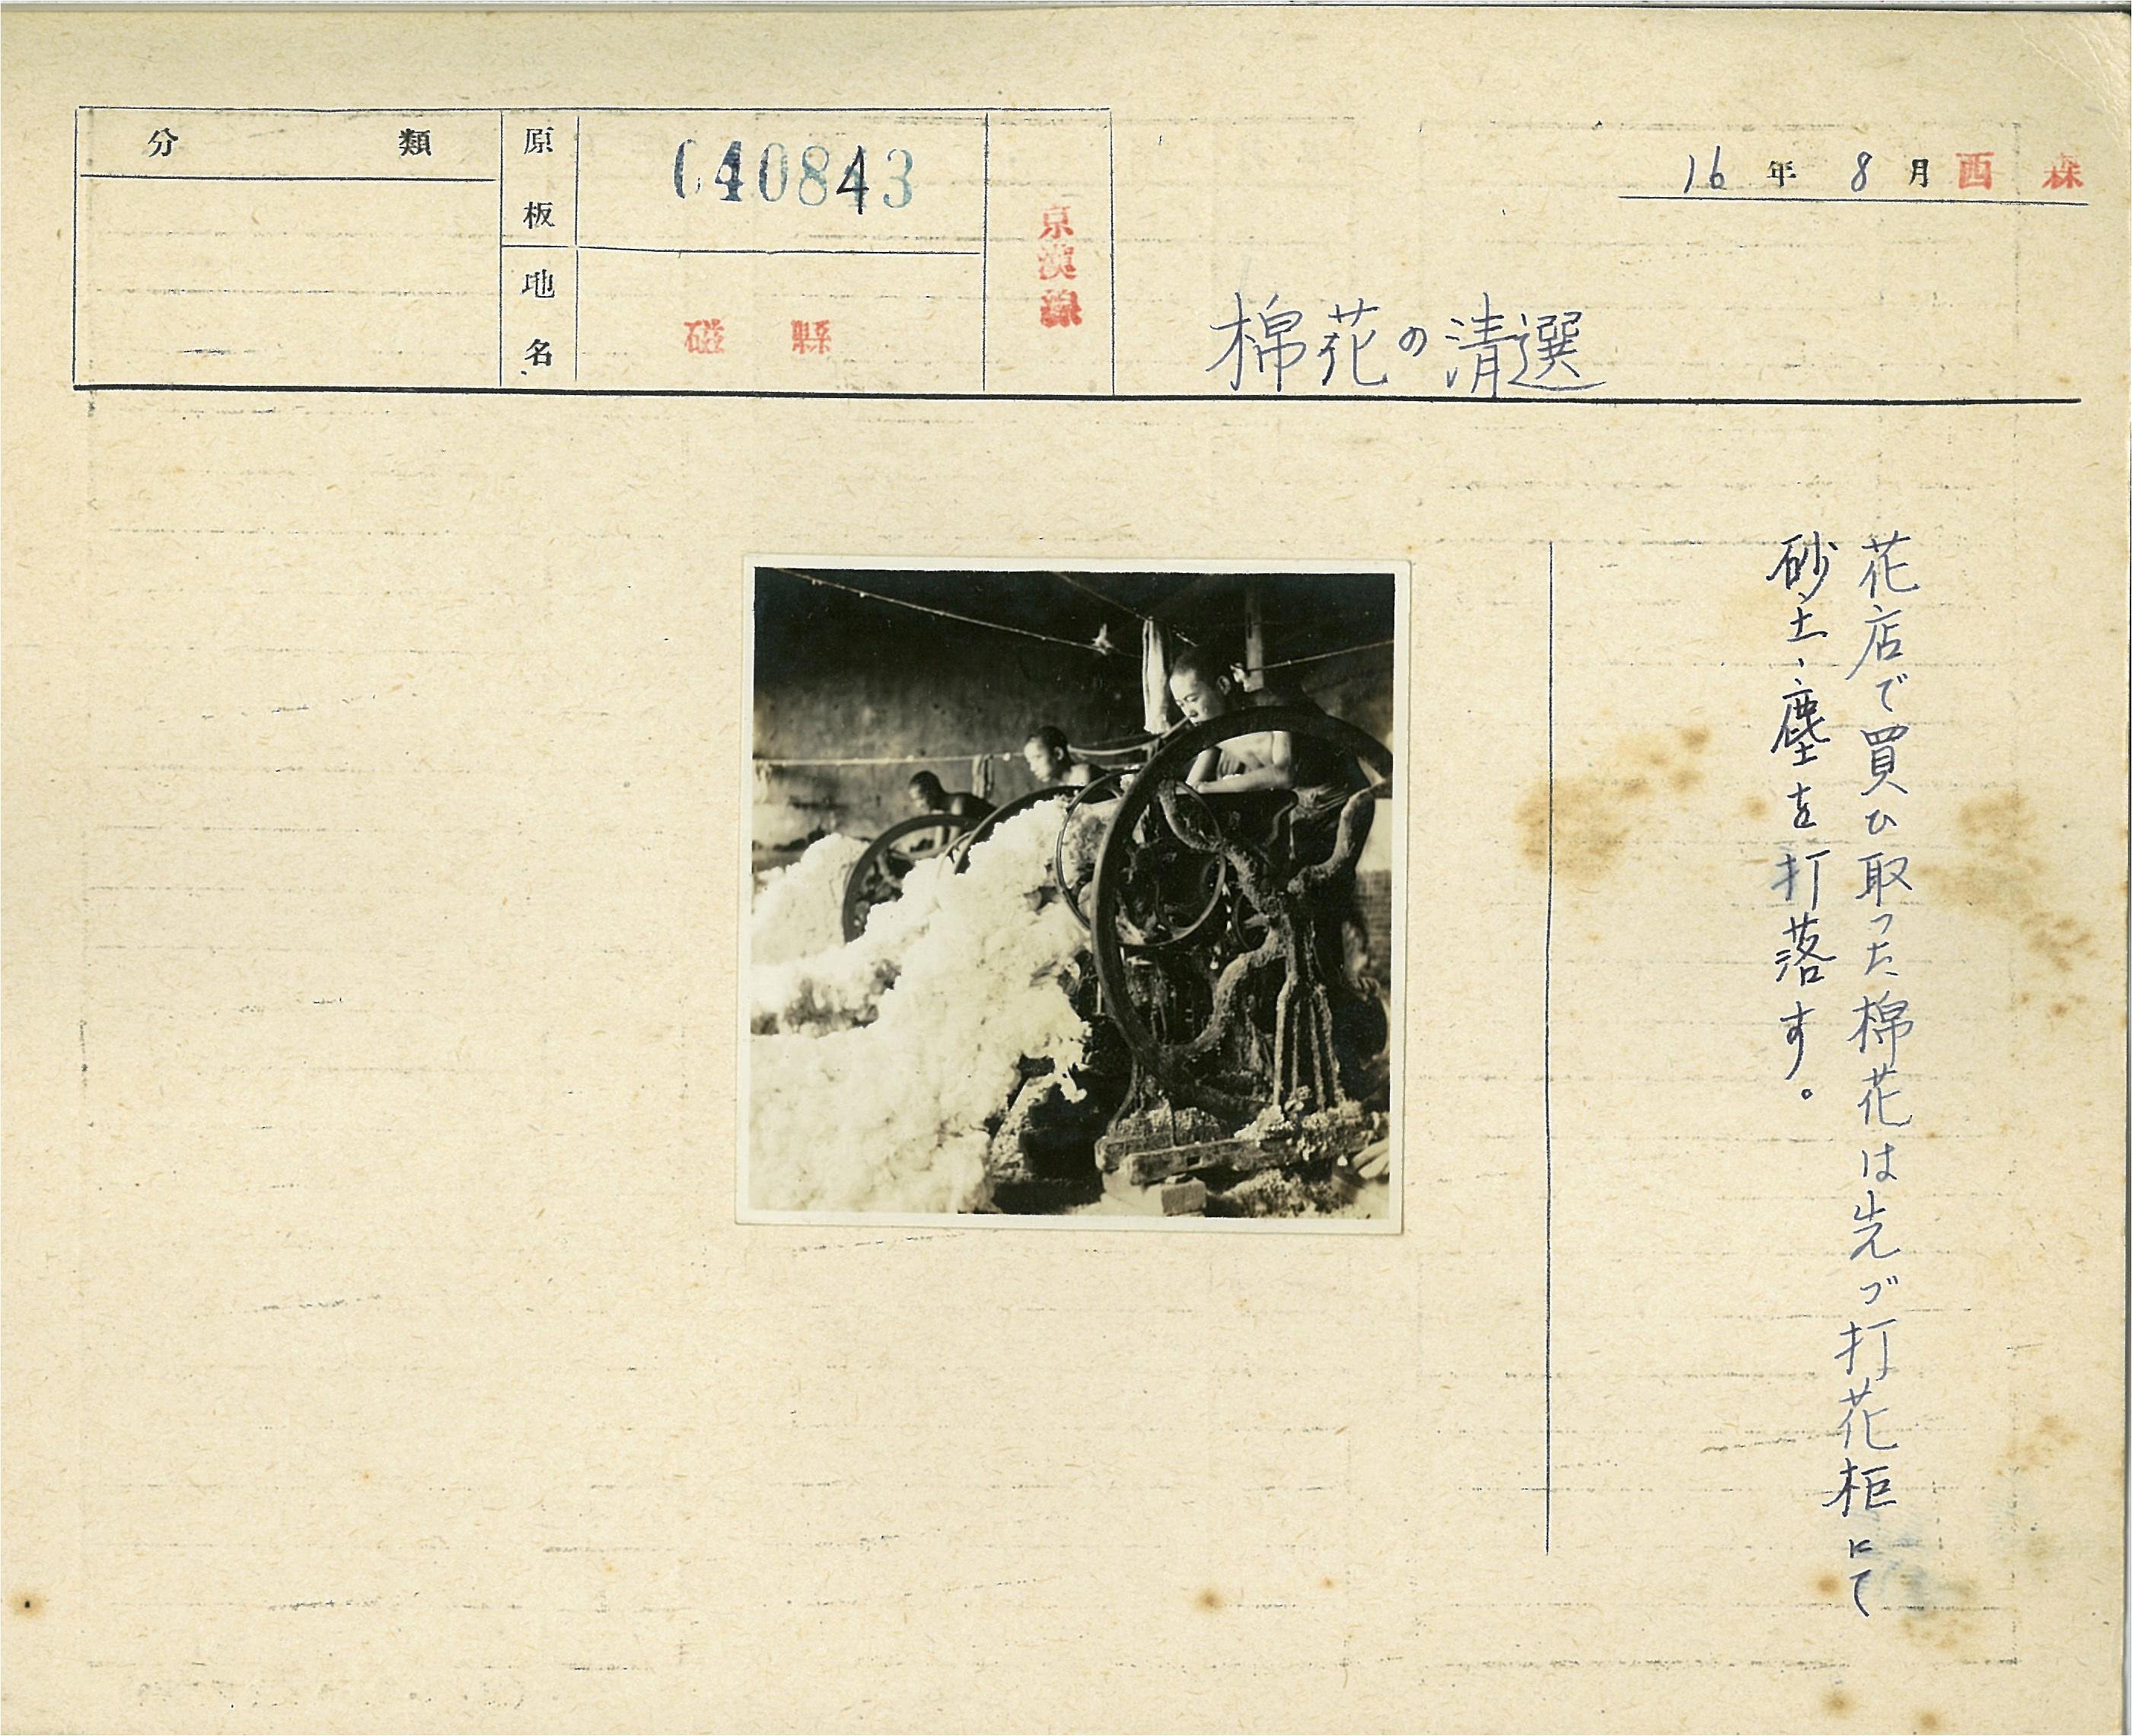 分類
原板
040843
地名
磁縣
京漢線
16年8月西森
棉花の清選
花店で買ひ取った棉花は先づ打花柜にて
砂土、塵を打落す。